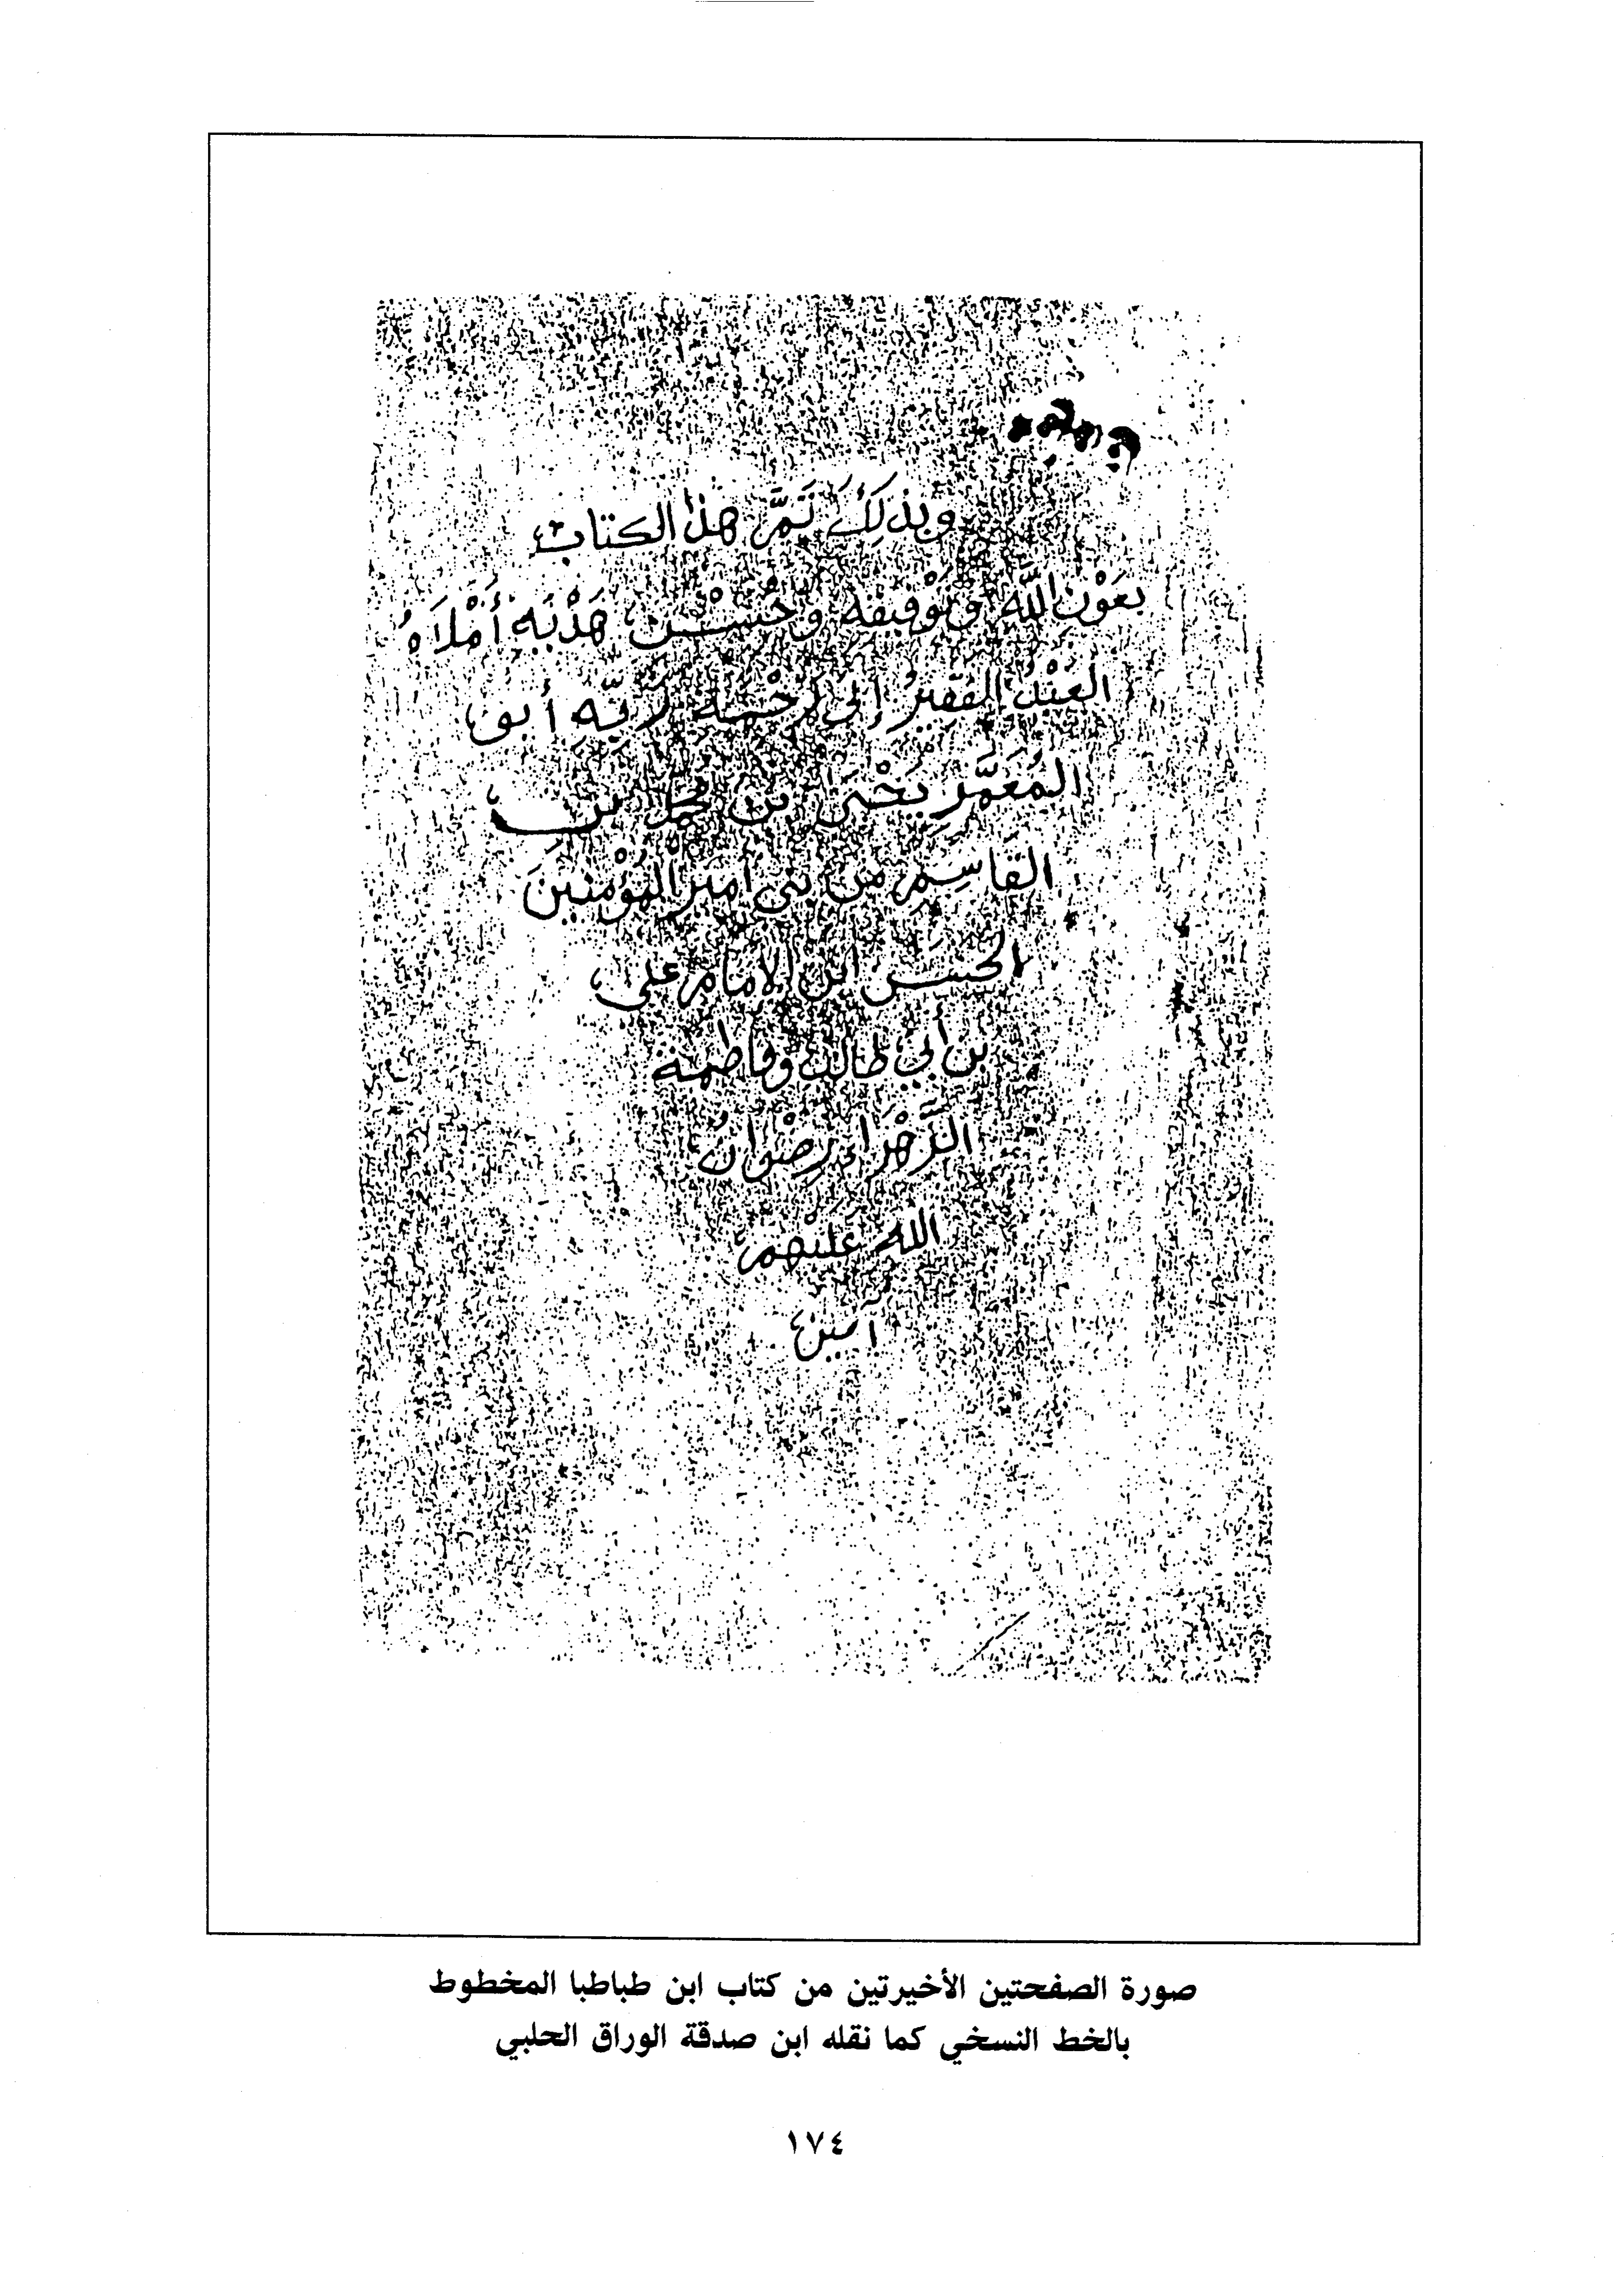 وَبِذَلِكَ تَمَّ هذا الكتاب
بعَوْن الله وتوفيقه وحُسْن هَدْيِهِ أَمْلَاهُ
العَبْدُ الفقيرُ إلى رَحْمَة رَبِّه أبو
المُعَمَّر يَحْيَى بن محمد بن
القَاسِم من بني أمير المُؤْمنينَ
الحسن ابن الإمام علي
بن أبي طالب وفاطمة
الزَّهْراء رِضْوان
الله عَلَيْهم
آمين
صورة الصفحتين الأخيرتين من كتاب ابن طباطبا المخطوط
بالخط النسخي كما نقله ابن صدقة الوراق الحلبي
١٧٤